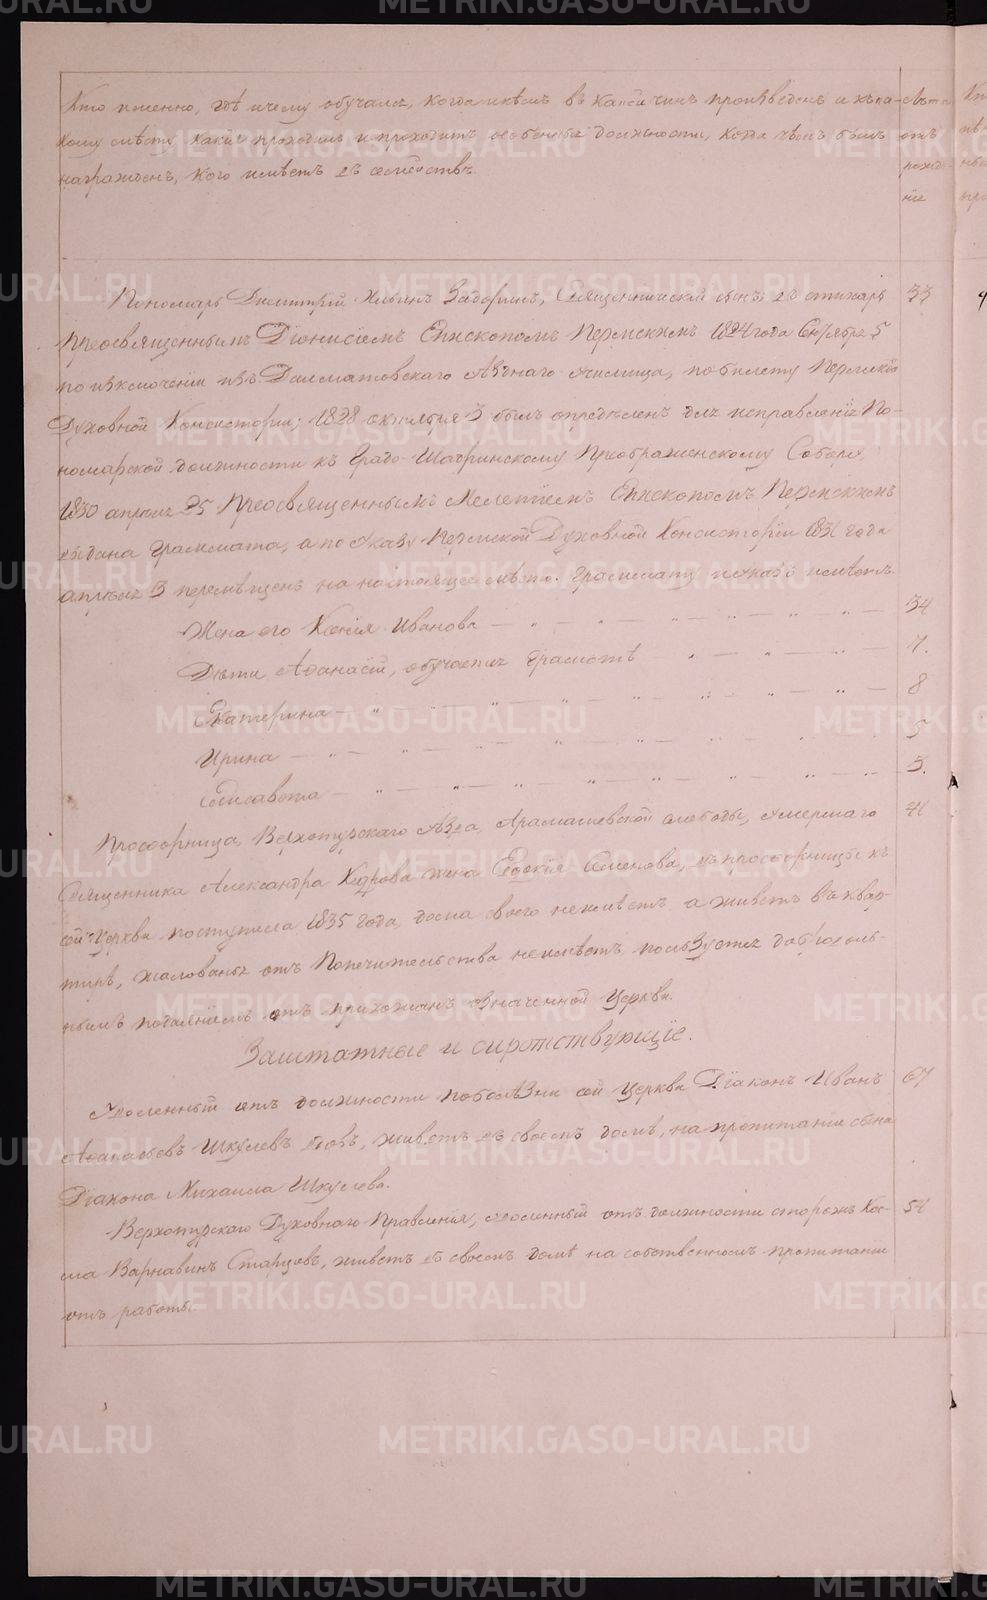 Кто именно, гдѣ и чему обучался, когда и кѣмъ въ какой чинъ произведенъ и къ ка-
кому мѣсту, какія проходилъ и проходитъ особенныя должности, когда чѣмъ былъ
награжденъ, кого имѣетъ въ семействѣ.
Лѣта
отъ
рожде-
нія
Пономарь Димитрій Ильинъ Задоринъ, Священническій сынъ, въ стихарь 33
Преосвященнымъ Діонисіемъ Епископомъ Пермскимъ 1824 года 5
по исключеніи изъ Далматовскаго Уѣзднаго Училища, по билету Пермской
Духовной Консисторіи; 1828 октября 3 былъ опредѣленъ для исправленія По-
номарской должности къ Градо-Шадринскому Преображенскому Собору,
1830 апрѣля 25 Преосвященнымъ Мелетіемъ Епископомъ Пермскимъ
выдана Граммата, а по Указу Пермской Духовной Консисторіи 1831 года
апрѣля 3 перемѣщенъ на настоящее мѣсто. Граммату и указъ имѣетъ.
Жена его Ксенія Иванова 34
Дѣти Аѳанасій, обучается грамотѣ 7.
Екатерина 8
Ирина 5
Елисавета 3.
Просфорница, Верхотурскаго Уѣзда, Арамашевской слободы, умершаго 41
Священника Александра Кедрова жена Евдокія Семенова, въ просфорницы къ
сей Церкви поступила 1835 года, дома своего неимѣетъ, а живетъ въ квар-
тирѣ, жалованья отъ Попечительства неимѣетъ, пользуется доброхоль-
нымъ подаяніемъ отъ прихожанъ означенной Церкви.
Заштатные и сиротствующіе.
Уволенный отъ должности по болѣзни сей Церкви Діаконъ Иванъ 67
Аѳанасьевъ Шкулевъ вдовъ, живетъ въ своемъ домѣ, на пропитаніи сына
Діакона Михаила Шкулева.
Верхотурскаго Духовнаго Правленія, уволенный отъ должности сторожъ Кос- 54
ма Варнавинъ Старцовъ, живетъ въ своемъ домѣ на собственномъ пропитаніи
отъ работы.
METRIKI.GASO-URAL.RU